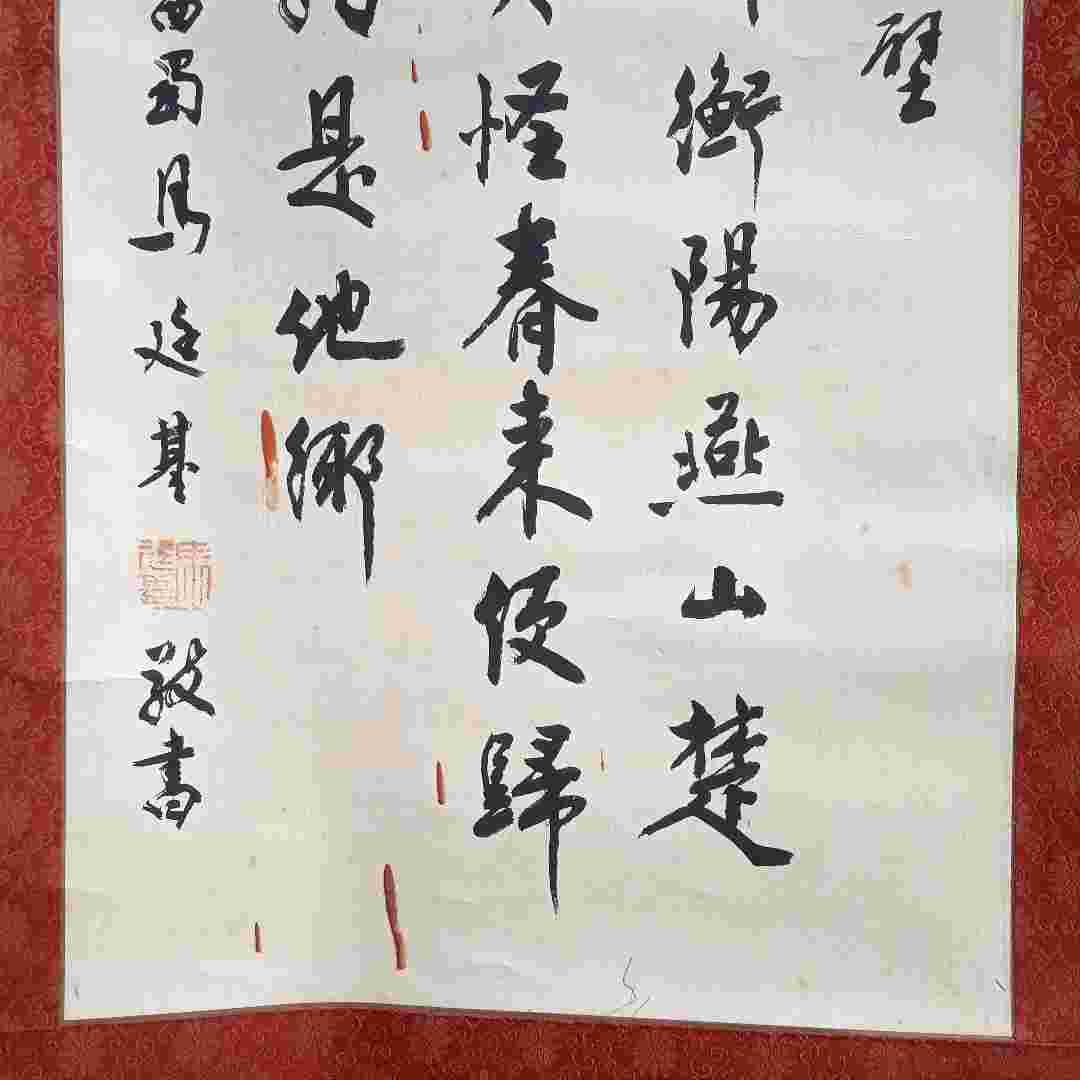 壁
衡陽燕山楚
怪春来便歸
是他鄉
蜀馬廷基
敬書